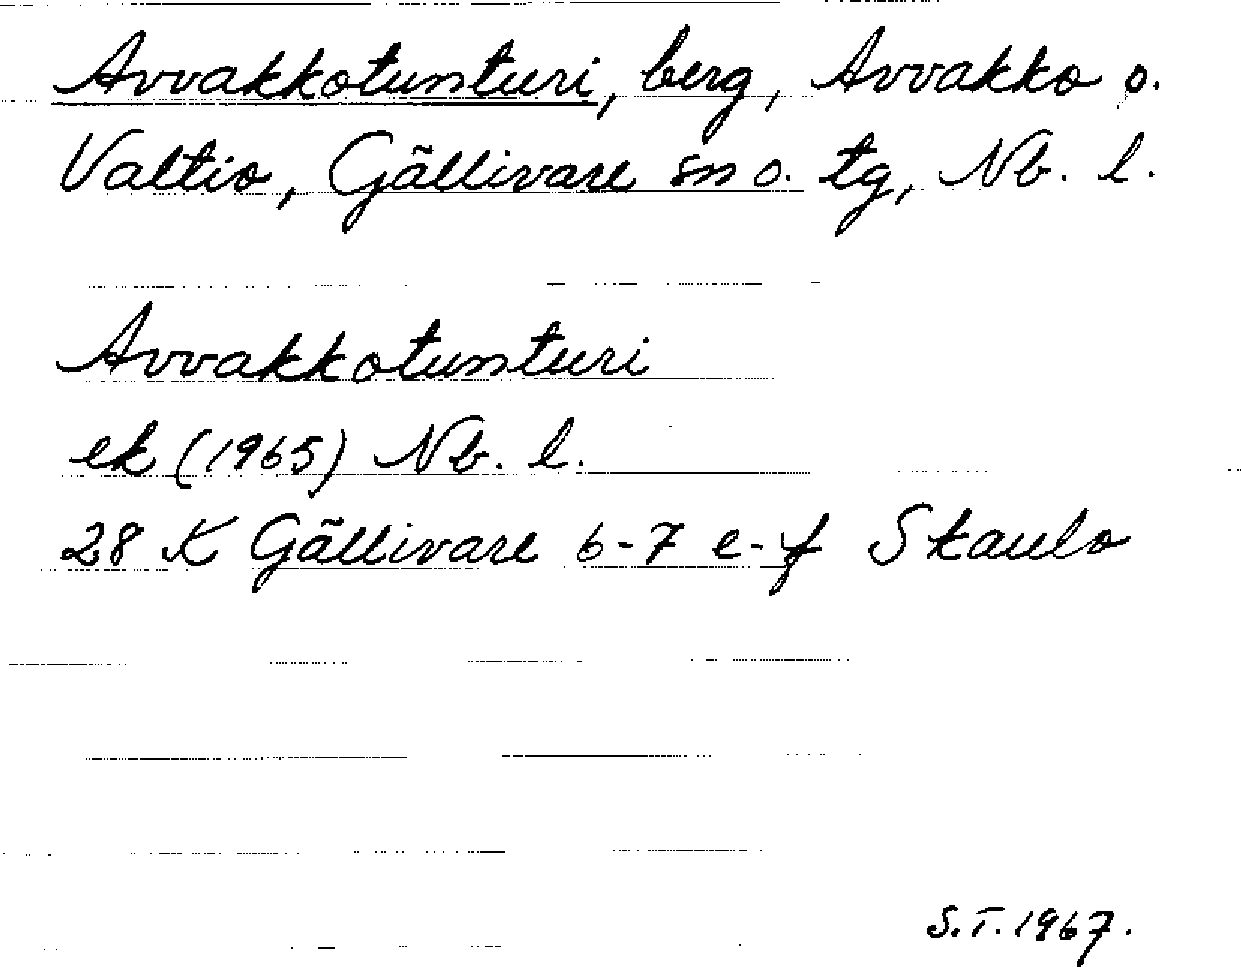 Avvakkotunturi, berg, Avvakko o.
Valtio, Gällivare sn o. tg, Nb. l.
Avvakkotunturi
ek (1965) Nb. l.
28 K Gällivare 6-7 e-f Skaulo
S.T. 1967.